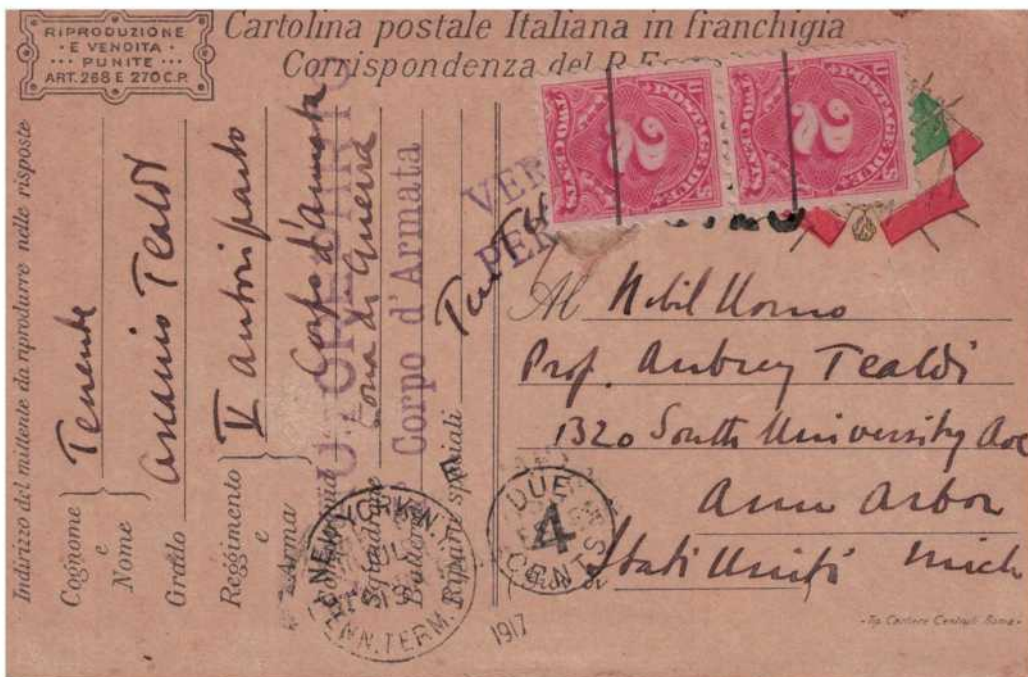 RIPRODUZIONE
E VENDITA
PUNITE
ART. 268 E 270 C.P.
Cartolina postale Italiana in franchigia
Corrispondenza del R.
Indirizzo del mittente da riprodurre nelle risposte
Cognome
e
Nome
Tenente
Ascanio Tealdi
Grado
Reggimento
e
Arma
V Autoriparto
Corpo d'armata
Zona di Guerra
Squadrone
Riparti speciali
Corpo d'Armata
VER
PER
U.S. POSTAGE DUE
TWO CENTS
2
U.S. POSTAGE DUE
TWO CENTS
2
Al Nobil Uomo
Prof. Aubrey Tealdi
1320 South University Ave
Ann Arbor
Stati Uniti Mich
NEW YORK, N.Y.
PENN. TERM.
DUE
4
CENTS
1917
Tip. Cartiere Centrali Roma